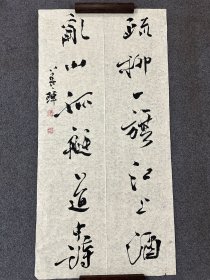 疏柳一旗江上酒
乱山孤艇道中诗